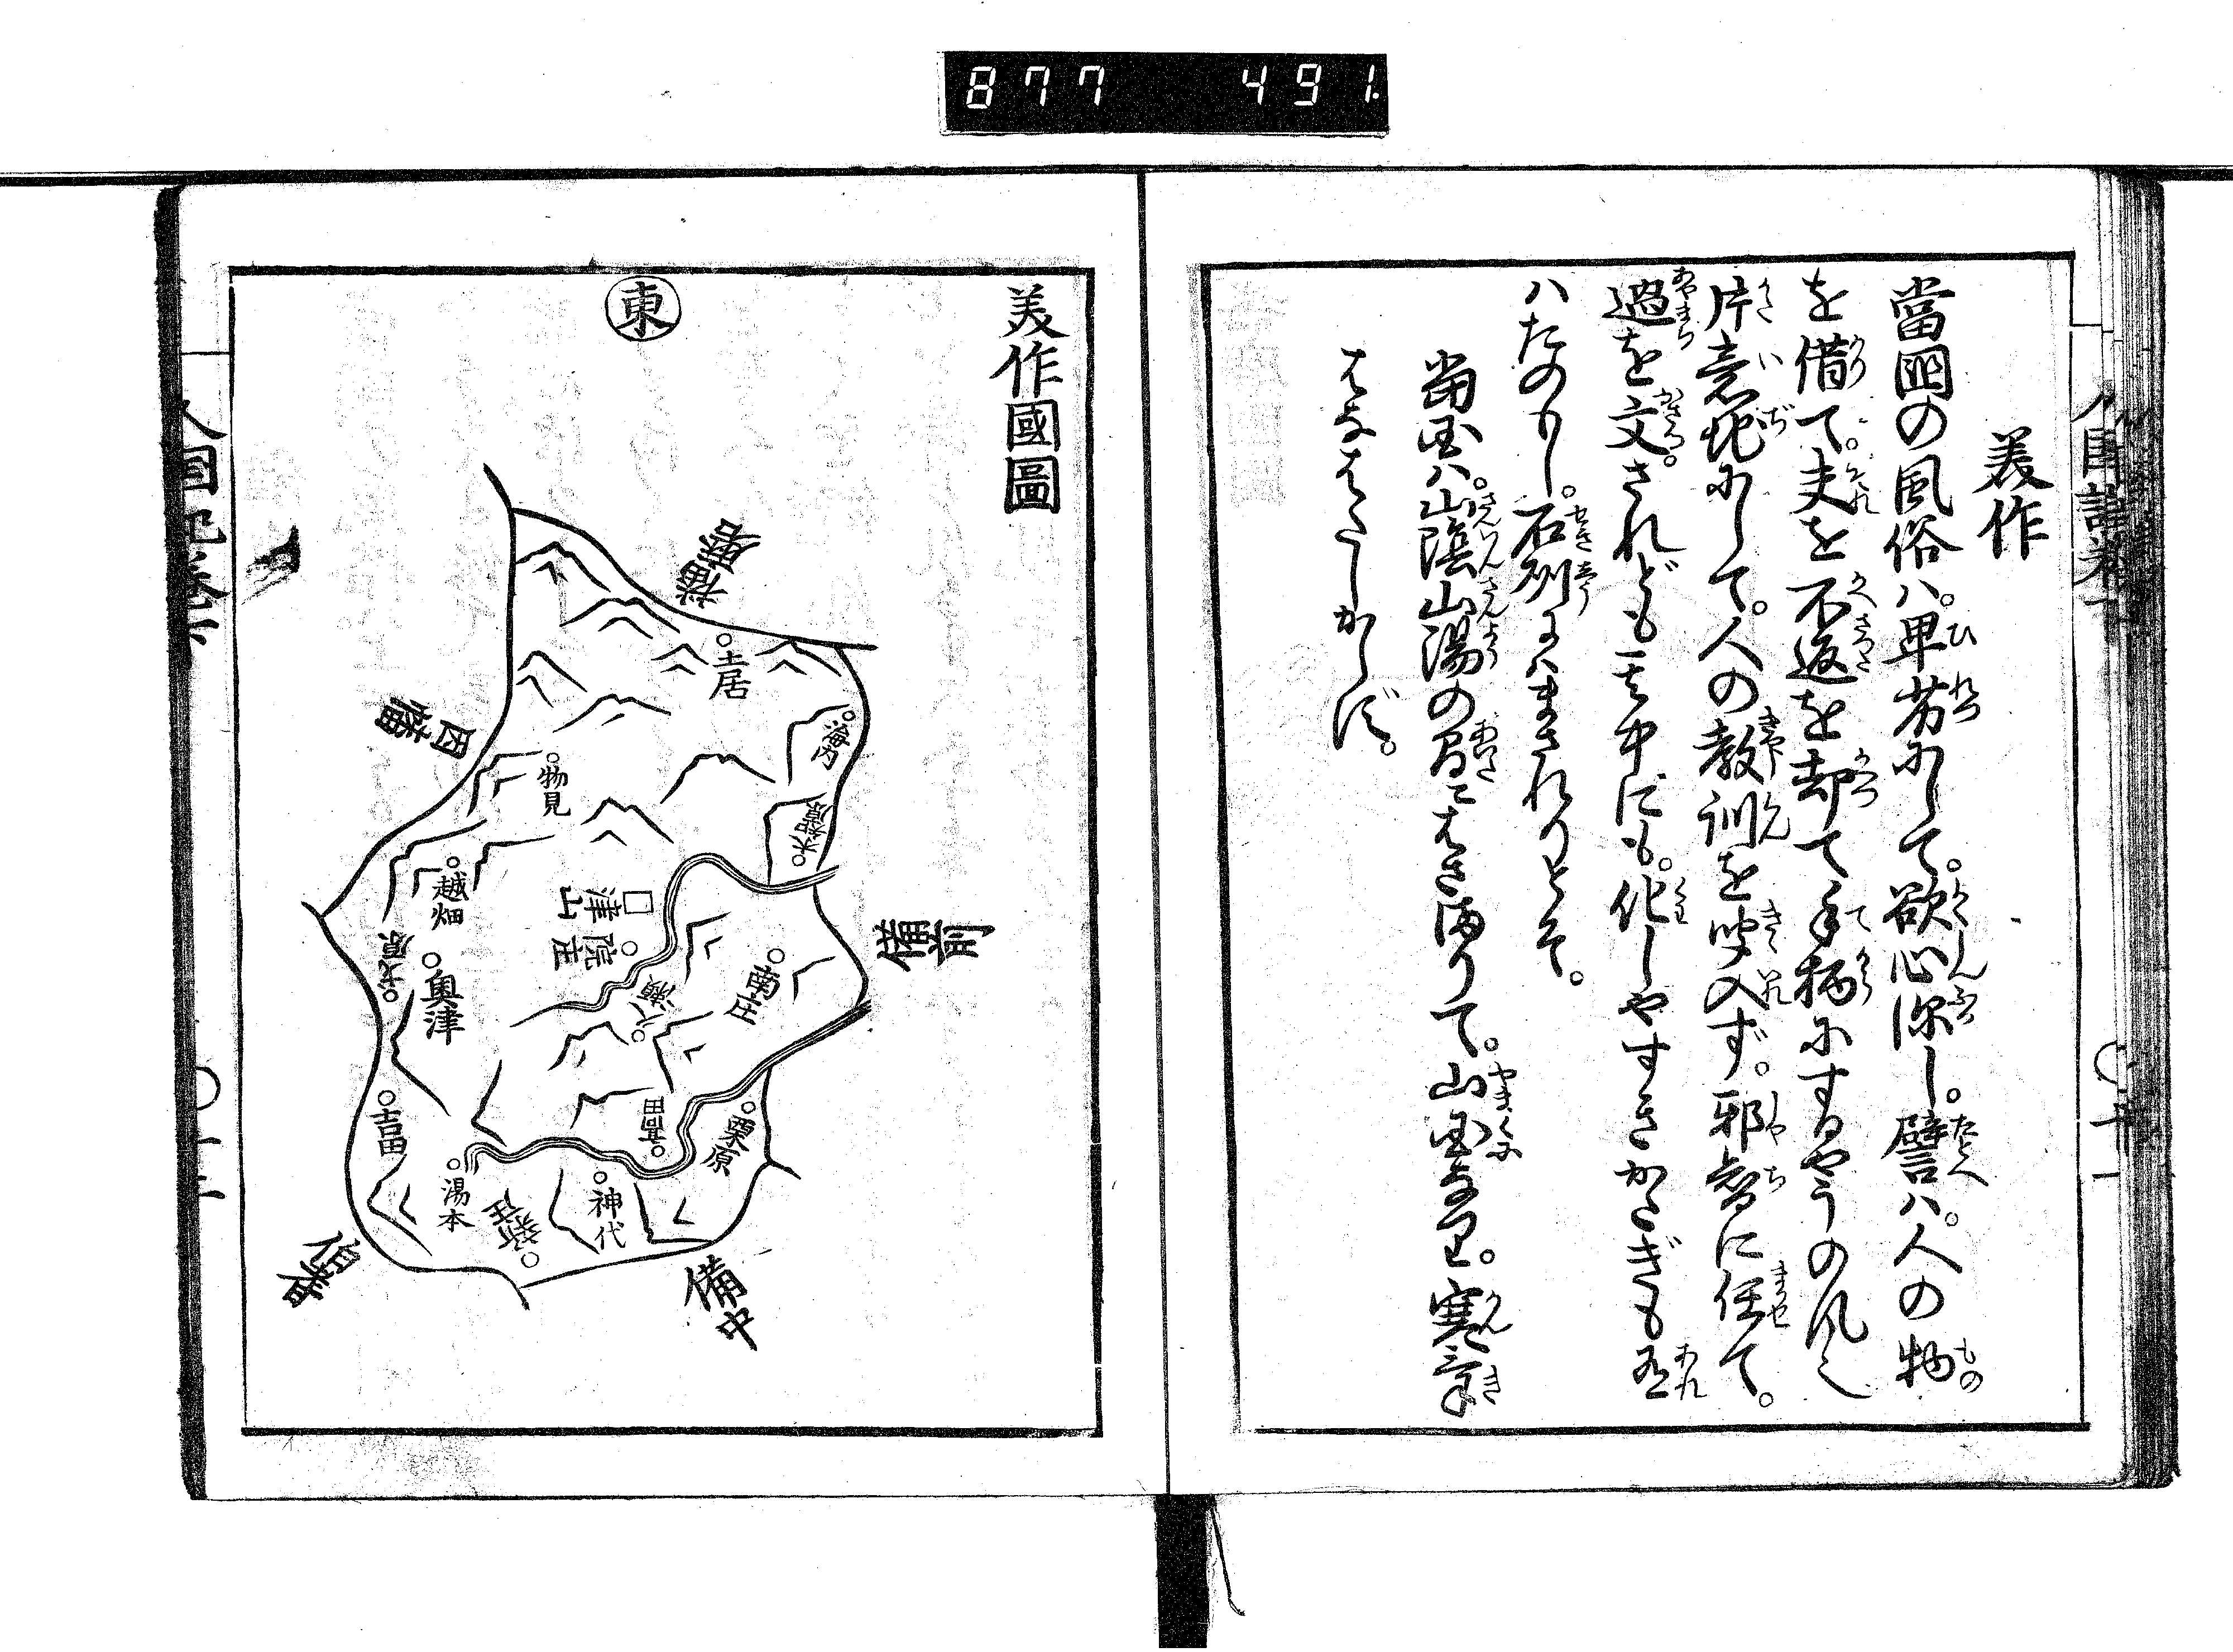 877 491.
美作
當国の風俗ハ。卑劣にして。欲心深し。譬ハ。人の物
を借て。夫を不返を却て手柄にするやうの風也
片意地にして。人の教訓を聞入ず。邪智に任て。
過を文る。されども其中にも。化しやすきかたぎも有
ハたのもし。石州よりはまされりとぞ。
當国ハ。山陰山陽の間にはさまりて。山国なり。寒気
はなはだしからず。
美作國圖
東
播磨
土居
海内
因幡
物見
津山
院庄
備前
越畑
奥津
八瀬
南庄
吉田
高田
栗原
湯本
新庄
神代
伯耆
備中